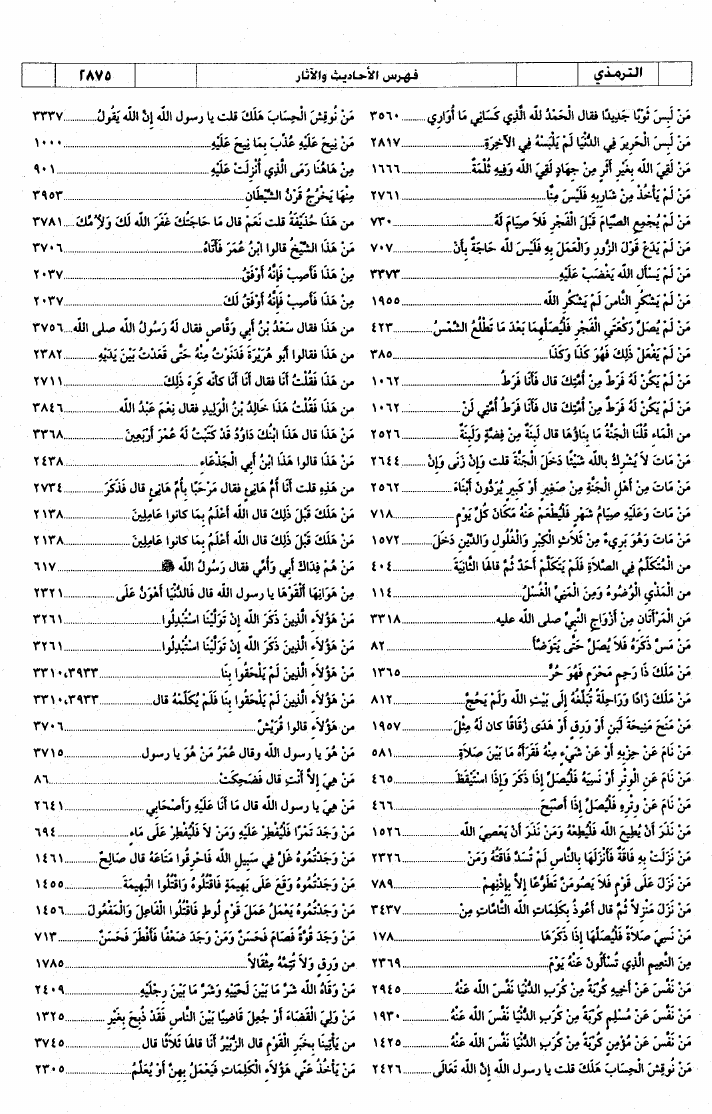 الترمذي
فهرس الأحاديث والآثار
٢٨٧٥
مَنْ لَبِسَ ثَوْبًا جَدِيدًا فقال الْحَمْدُ لله الَّذِي كَسَانِي مَا أُوَارِي ........ ٣٥٦٠
مَنْ لَبِسَ الْحَرِيرَ فِي الدُّنْيَا لَمْ يَلْبَسْهُ فِي الآخِرَةِ ........ ٢٨١٧
مَنْ لَقِيَ اللَّه بِغَيْرِ أَثَرٍ مِنْ جِهَادٍ لَقِيَ اللَّه وَفِيهِ ثُلْمَةٌ ........ ١٦٦٦
مَنْ لَمْ يَأْخُذْ مِنْ شَارِبِهِ فَلَيْسَ مِنَّا ........ ٢٧٦١
مَنْ لَمْ يُجْمِعِ الصِّيَامَ قَبْلَ الْفَجْرِ فَلاَ صِيَامَ لَهُ ........ ٧٣٠
مَنْ لَمْ يَدَعْ قَوْلَ الزُّورِ وَالْعَمَلَ بِهِ فَلَيْسَ لله حَاجَةٌ بِأَنْ ........ ٧٠٧
مَنْ لَمْ يَسْأَلِ اللَّه يَغْضَبْ عَلَيْهِ ........ ٣٣٧٣
مَنْ لَمْ يَشْكُرِ النَّاسَ لَمْ يَشْكُرِ اللَّه ........ ١٩٥٥
مَنْ لَمْ يُصَلِّ رَكْعَتَيِ الْفَجْرِ فَلْيُصَلِّهِمَا بَعْدَ مَا تَطْلُعُ الشَّمْسُ ........ ٤٢٣
مَنْ لَمْ يَفْعَلْ ذَلِكَ فَهُوَ كَذَا وَكَذَا ........ ٣٨٥
مَنْ لَمْ يَكُنْ لَهُ فَرَطٌ مِنْ أُمَّتِكَ قال فَأَنَا فَرَطُ ........ ١٠٦٢
مَنْ لَمْ يَكُنْ لَهُ فَرَطٌ مِنْ أُمَّتِكَ قال فَأَنَا فَرَطُ أُمَّتِي لَنْ ........ ١٠٦٢
من الْمَاءِ قُلْنَا الْجَنَّةُ مَا بِنَاؤُهَا قال لَبِنَةٌ مِنْ فِضَّةٍ وَلَبِنَةٌ ........ ٢٥٢٦
مَنْ مَاتَ لاَ يُشْرِكُ بالله شَيْئًا دَخَلَ الْجَنَّةَ قلت وَإِنْ زَنَى وَإِنْ ........ ٢٦٤٤
مَنْ مَاتَ مِنْ أَهْلِ الْجَنَّةِ مِنْ صَغِيرٍ أَوْ كَبِيرٍ يُرَدُّونَ أَبْنَاءَ ........ ٢٥٦٢
مَنْ مَاتَ وَعَلَيْهِ صِيَامُ شَهْرٍ فَلْيُطْعَمْ عَنْهُ مَكَانَ كُلِّ يَوْمٍ ........ ٧١٨
مَنْ مَاتَ وَهُوَ بَرِيءٌ مِنْ ثَلاَثٍ الْكِبْرِ وَالْغُلُولِ وَالدَّيْنِ دَخَلَ ........ ١٥٧٢
من الْمُتَكَلِّمُ فِي الصَّلاَةِ فَلَمْ يَتَكَلَّمْ أَحَدٌ ثُمَّ قالها الثَّانِيَةَ ........ ٤٠٤
من الْمَذْيِ الْوُضُوءُ وَمِنَ الْمَنِيِّ الْغُسْلُ ........ ١١٤
مَنِ الْمَرْأَتَانِ مِنْ أَزْوَاجِ النَّبِيِّ صلى الله عليه ........ ٣٣١٨
مَنْ مَسَّ ذَكَرَهُ فَلاَ يُصَلِّ حَتَّى يَتَوَضَّأَ ........ ٨٢
مَنْ مَلَكَ ذَا رَحِمٍ مَحْرَمٍ فَهُوَ حُرٌّ ........ ١٣٦٥
مَنْ مَلَكَ زَادًا وَرَاحِلَةً تُبَلِّغُهُ إِلَى بَيْتِ الله وَلَمْ يَحُجَّ ........ ٨١٢
مَنْ مَنَحَ مَنِيحَةَ لَبَنٍ أَوْ وَرِقٍ أَوْ هَدَى زُقَاقًا كان لَهُ مِثْلَ ........ ١٩٥٧
مَنْ نَامَ عَنْ حِزْبِهِ أَوْ عَنْ شَيْءٍ مِنْهُ فَقَرَأَهُ مَا بَيْنَ صَلاَةِ ........ ٥٨١
مَنْ نَامَ عَنِ الْوِتْرِ أَوْ نَسِيَهُ فَلْيُصَلِّ إِذَا ذَكَرَ وَإِذَا اسْتَيْقَظَ ........ ٤٦٥
مَنْ نَامَ عَنْ وِتْرِهِ فَلْيُصَلِّ إِذَا أَصْبَحَ ........ ٤٦٦
مَنْ نَذَرَ أَنْ يُطِيعَ اللَّه فَلْيُطِعْهُ وَمَنْ نَذَرَ أَنْ يَعْصِيَ اللَّه ........ ١٥٢٦
مَنْ نَزَلَتْ بِهِ فَاقَةٌ فَأَنْزَلَهَا بِالنَّاسِ لَمْ تُسَدَّ فَاقَتُهُ وَمَنْ ........ ٢٣٢٦
مَنْ نَزَلَ عَلَى قَوْمٍ فَلاَ يَصُومَنَّ تَطَوُّعًا إِلاَّ بِإِذْنِهِمْ ........ ٧٨٩
مَنْ نَزَلَ مَنْزِلاً ثُمَّ قال أَعُوذُ بِكَلِمَاتِ الله التَّامَّاتِ مِنْ ........ ٣٤٣٧
مَنْ نَسِيَ صَلاَةً فَلْيُصَلِّهَا إِذَا ذَكَرَهَا ........ ١٧٨
مِنَ النَّعِيمِ الَّذِي تُسْأَلُونَ عَنْهُ يَوْمَ ........ ٢٣٦٩
مَنْ نَفَّسَ عَنْ أَخِيهِ كُرْبَةً مِنْ كُرَبِ الدُّنْيَا نَفَّسَ اللَّه عَنْهُ ........ ٢٩٤٥
مَنْ نَفَّسَ عَنْ مُسْلِمٍ كُرْبَةً مِنْ كُرَبِ الدُّنْيَا نَفَّسَ اللَّه عَنْهُ ........ ١٩٣٠
مَنْ نَفَّسَ عَنْ مُؤْمِنٍ كُرْبَةً مِنْ كُرَبِ الدُّنْيَا نَفَّسَ اللَّه عَنْهُ ........ ١٤٢٥
مَنْ نُوقِشَ الْحِسَابَ هَلَكَ قلت يا رسول الله إِنَّ اللَّه تَعَالَى ........ ٢٤٢٦
مَنْ نُوقِشَ الْحِسَابَ هَلَكَ قلت يا رسول الله إِنَّ اللَّه يَقُولُ ........ ٣٣٣٧
مَنْ نِيحَ عَلَيْهِ عُذِّبَ بِمَا نِيحَ عَلَيْهِ ........ ١٠٠٠
مِنْ هَاهُنَا رَمَى الَّذِي أُنْزِلَتْ عَلَيْهِ ........ ٩٠١
مِنْهَا يَخْرُجُ قَرْنُ الشَّيْطَانِ ........ ٣٩٥٣
مَن هَذَا حُذَيْفَةُ قلت نَعَمْ قال مَا حَاجَتُكَ غَفَرَ اللَّه لَكَ وَلأُمِّكَ ........ ٣٧٨١
مَنْ هَذَا الشَّيْخُ قالوا ابْنُ عُمَرَ فَأَتَاهُ ........ ٣٧٠٦
مِنْ هَذَا فَأَصِبْ فَإِنَّهُ أَوْفَقُ ........ ٢٠٣٧
مِنْ هَذَا فَأَصِبْ فَإِنَّهُ أَوْفَقُ لَكَ ........ ٢٠٣٧
من هَذَا فقال سَعْدُ بْنُ أَبِي وَقَّاصٍ فقال لَهُ رَسُولُ اللَّه صلى الله ........ ٣٧٥٦
مَنْ هَذَا فقالوا أَبُو هُرَيْرَةَ فَدَنَوْتُ مِنْهُ حَتَّى قَعَدْتُ بَيْنَ يَدَيْهِ ........ ٢٣٨٢
مَنْ هَذَا فَقُلْتُ أَنَا فقال أَنَا أَنَا كأنه كَرِهَ ذَلِكَ ........ ٢٧١١
مَنْ هَذَا فَقُلْتُ هَذَا خَالِدُ بْنُ الْوَلِيدِ فقال نِعْمَ عَبْدُ الله ........ ٣٨٤٦
مَنْ هَذَا قال هَذَا ابْنُكَ دَاوُدُ قَدْ كَتَبْتُ لَهُ عُمْرَ أَرْبَعِينَ ........ ٣٣٦٨
مَنْ هَذَا قالوا هَذَا ابْنُ أَبِي الْجَذْعَاءِ ........ ٢٤٣٨
من هَذِهِ قلت أَنَا أُمُّ هَانِئٍ فقال مَرْحَبًا بِأُمِّ هَانِئٍ قال فَذَكَرَ ........ ٢٧٣٤
مَنْ هَلَكَ قَبْلَ ذَلِكَ قال اللَّه أَعْلَمُ بِمَا كانوا عَامِلِينَ ........ ٢١٣٨
مَنْ هَلَكَ قَبْلَ ذَلِكَ قال اللَّه أَعْلَمُ بِمَا كانوا عَامِلِينَ ........ ٢١٣٨
مَنْ هُمْ فِدَاكَ أَبِي وَأُمِّي فقال رَسُولُ اللَّه ﷺ ........ ٦١٧
مِنْ هَوَانِهَا أَلْقَوْهَا يا رسول الله قال فَالدُّنْيَا أَهْوَنُ عَلَى ........ ٢٣٢١
مَنْ هَؤُلاَءِ الَّذِينَ ذَكَرَ اللَّه إِنْ تَوَلَّيْنَا اسْتُبْدِلُوا ........ ٣٢٦١
مَنْ هَؤُلاَءِ الَّذِينَ ذَكَرَ اللَّه إِنْ تَوَلَّيْنَا اسْتُبْدِلُوا ........ ٣٢٦١
مَنْ هَؤُلاَءِ الَّذِينَ لَمْ يَلْحَقُوا بِنَا ........ ٣٣١٠،٣٩٣٣
مَنْ هَؤُلاَءِ الَّذِينَ لَمْ يَلْحَقُوا بِنَا فَلَمْ يُكَلِّمْهُ قال ........ ٣٣١٠،٣٩٣٣
من هَؤُلاَءِ قالوا قُرَيْشٌ ........ ٣٧٠٦
مَنْ هُوَ يا رسول الله وقال عُمَرُ مَنْ هُوَ يا رسول ........ ٣٧١٥
مَنْ هِيَ إِلاَّ أَنْتِ قال فَضَحِكَتْ ........ ٨٦
مَنْ هِيَ يا رسول الله قال مَا أَنَا عَلَيْهِ وَأَصْحَابِي ........ ٢٦٤١
مَنْ وَجَدَ تَمْرًا فَلْيُفْطِرْ عَلَيْهِ وَمَنْ لاَ فَلْيُفْطِرْ عَلَى مَاءٍ ........ ٦٩٤
مَنْ وَجَدْتُمُوهُ غَلَّ فِي سَبِيلِ الله فَاحْرِقُوا مَتَاعَهُ قال صَالِحٌ ........ ١٤٦١
مَنْ وَجَدْتُمُوهُ وَقَعَ عَلَى بَهِيمَةٍ فَاقْتُلُوهُ وَاقْتُلُوا الْبَهِيمَةَ ........ ١٤٥٥
مَنْ وَجَدْتُمُوهُ يَعْمَلُ عَمَلَ قَوْمِ لُوطٍ فَاقْتُلُوا الْفَاعِلَ وَالْمَفْعُولَ ........ ١٤٥٦
مَنْ وَجَدَ قُوَّةً فَصَامَ فَحَسَنٌ وَمَنْ وَجَدَ ضَعْفًا فَأَفْطَرَ فَحَسَنٌ ........ ٧١٣
من وَرِقٍ وَلاَ تُتِمَّهُ مِثْقَالاً ........ ١٧٨٥
مَنْ وَقَاهُ اللَّه شَرَّ مَا بَيْنَ لَحْيَيْهِ وَشَرَّ مَا بَيْنَ رِجْلَيْهِ ........ ٢٤٠٩
مَنْ وَلِيَ الْقَضَاءَ أَوْ جُعِلَ قَاضِيًا بَيْنَ النَّاسِ فَقَدْ ذُبِحَ بِغَيْرِ ........ ١٣٢٥
من يَأْتِينَا بِخَبَرِ الْقَوْمِ قال الزُّبَيْرُ أَنَا قالها ثَلاَثًا قال ........ ٣٧٤٥
مَنْ يَأْخُذُ عَنِّي هَؤُلاَءِ الْكَلِمَاتِ فَيَعْمَلُ بِهِنَّ أَوْ يُعَلِّمُ ........ ٢٣٠٥